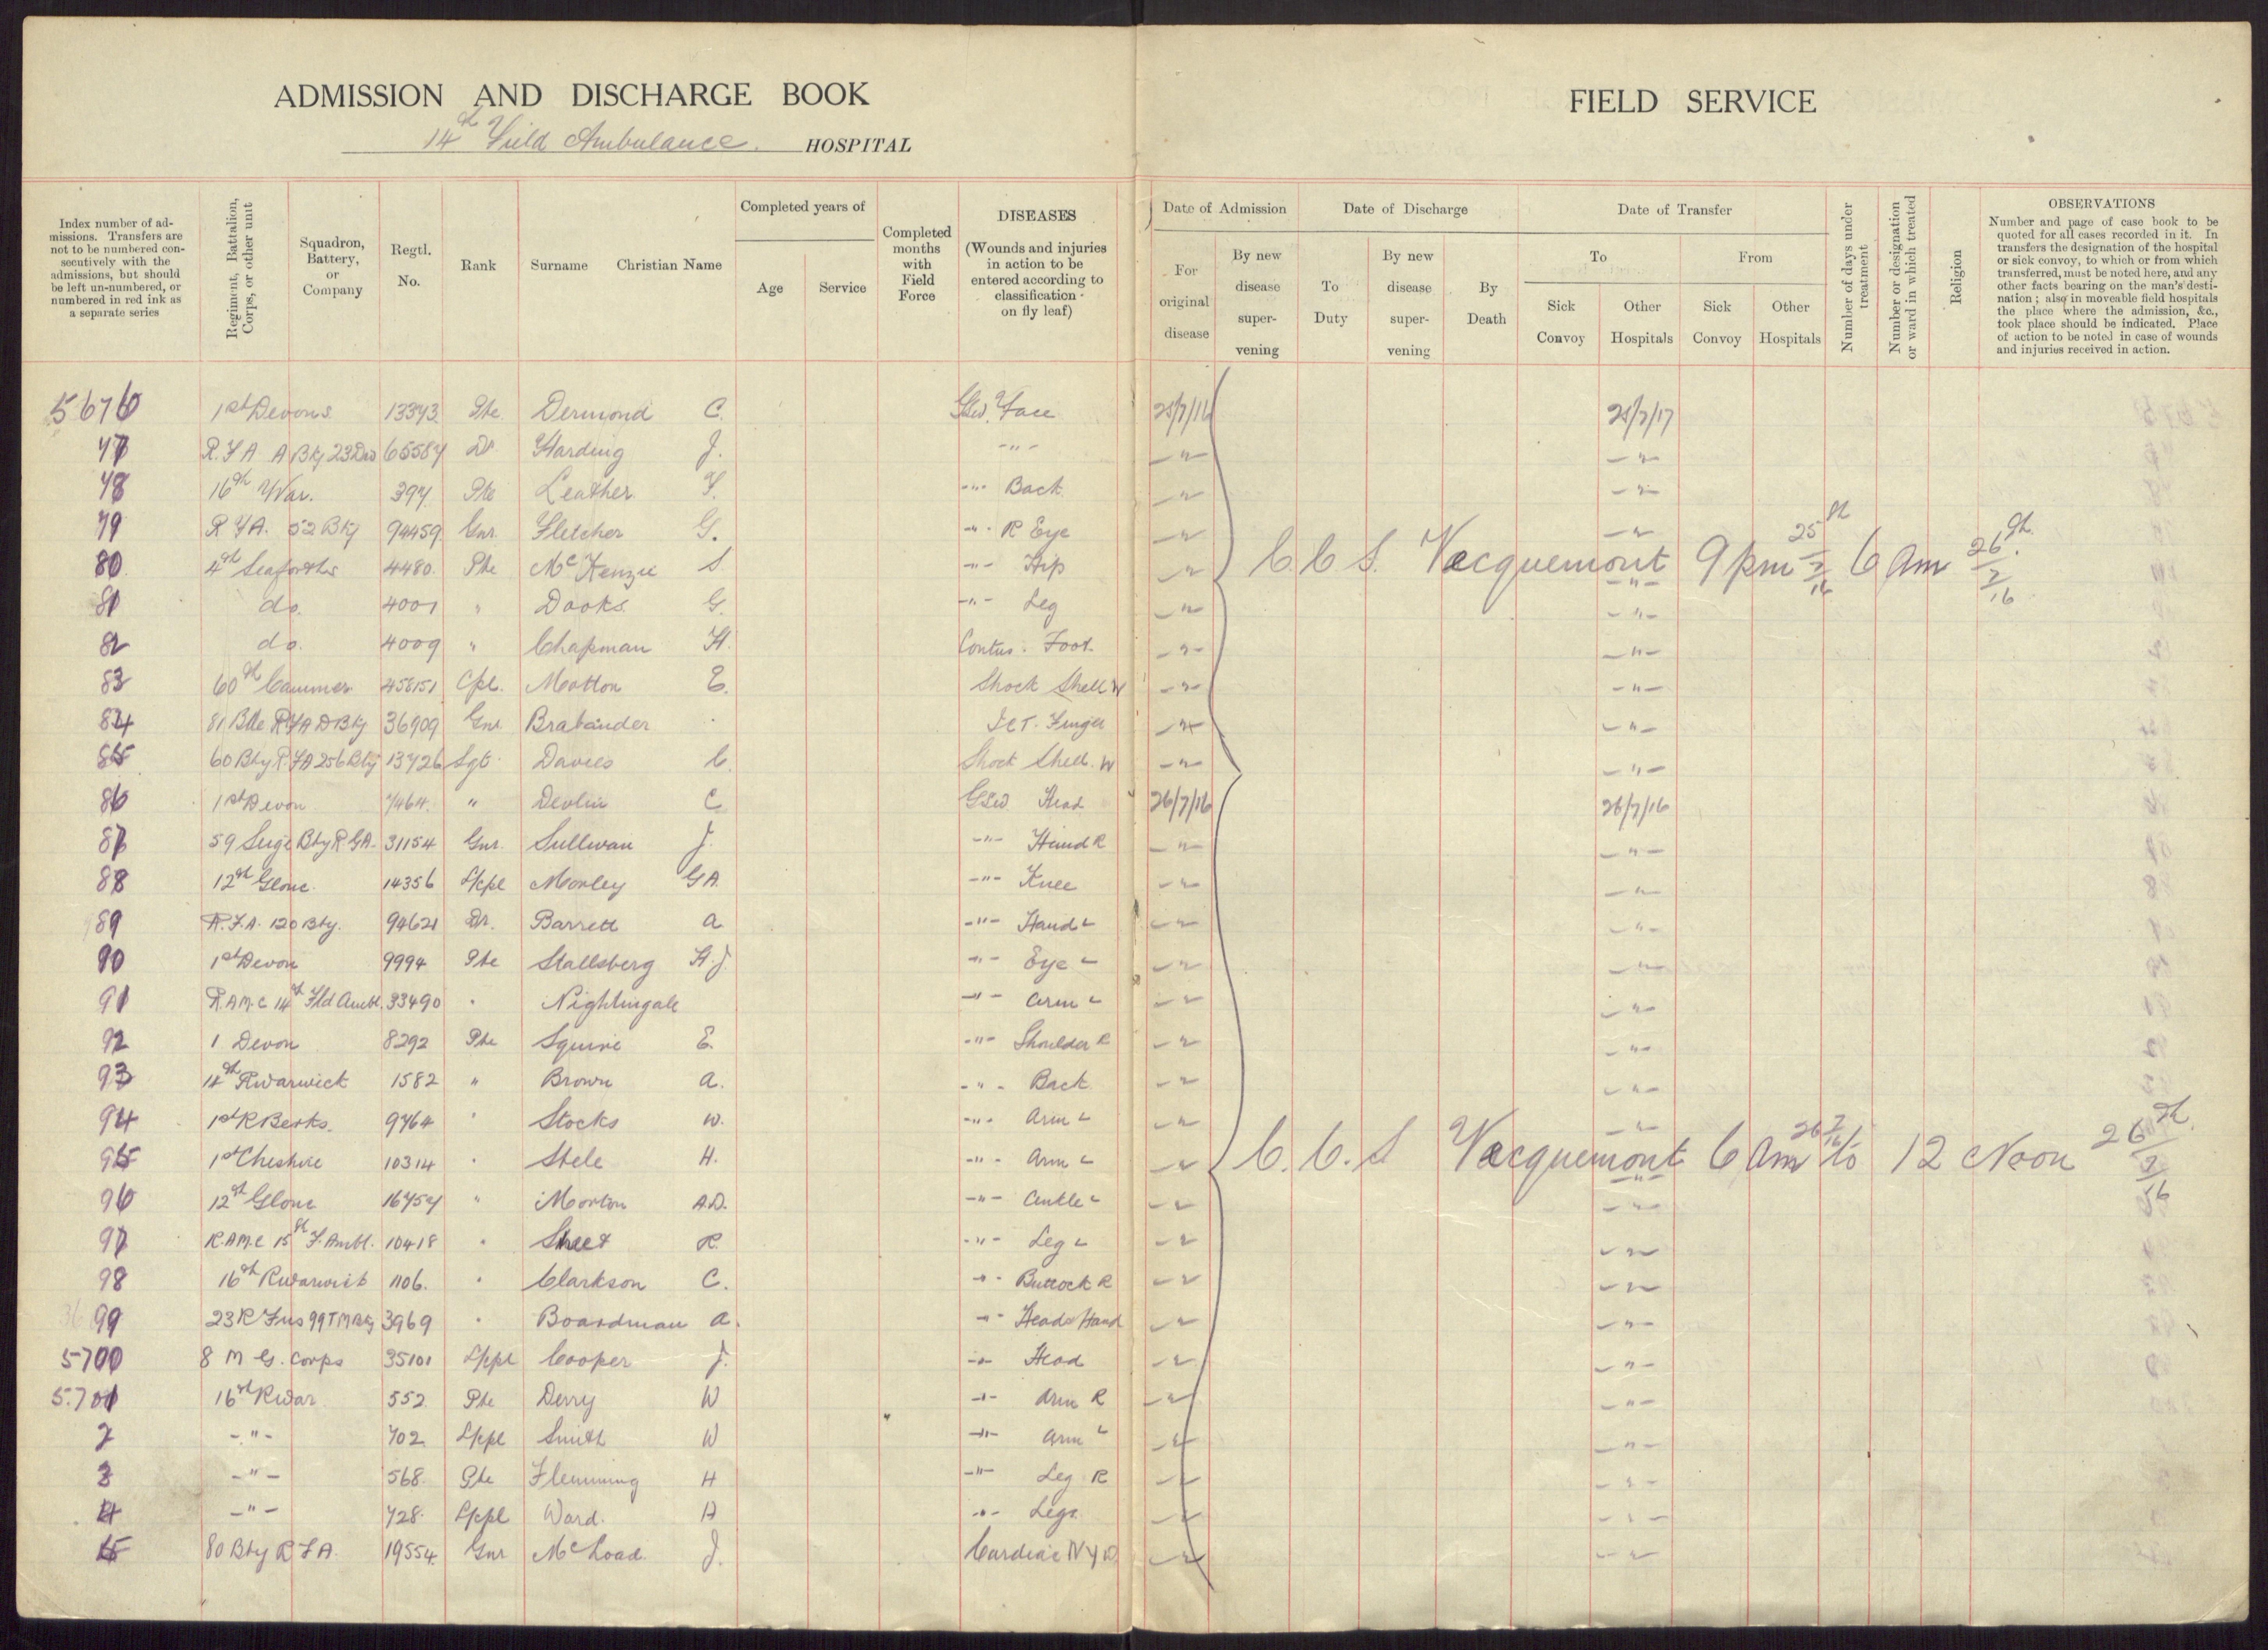 ADMISSION AND DISCHARGE BOOK
14th Field Ambulance. HOSPITAL
FIELD SERVICE
Index number of admissions. Transfers are not to be numbered consecutively with the admissions, but should be left un-numbered, or numbered in red ink as a separate series
Regiment, Battalion, Corps, or other unit
Squadron, Battery, or Company
Regtl. No.
Rank
Surname Christian Name
Completed years of
Age Service
Completed months with Field Force
DISEASES
(Wounds and injuries in action to be entered according to classification on fly leaf)
Date of Admission
For original disease
By new disease supervening
Date of Discharge
To Duty
By new disease supervening
By Death
Date of Transfer
To
Sick Convoy Other Hospitals
From
Sick Convoy Other Hospitals
Number of days under treatment
Number or designation or ward in which treated
Religion
OBSERVATIONS
Number and page of case book to be quoted for all cases recorded in it. In transfers the designation of the hospital or sick convoy, to which or from which transferred, must be noted here, and any other facts bearing on the man's destination; also in moveable field hospitals the place where the admission, &c., took place should be indicated. Place of action to be noted in case of wounds and injuries received in action.
5676 1st Devons 13373 Pte Dermond C. GSW. Face 25/7/16 25/7/17
77 R.F.A A Bty 23 Div 65587 Dr Harding J. -"- -"- -"-
78 16th War. 397 Pte Leather F. -"- Back -"- -"-
79 R.F.A. 52 Bty 94459 Gnr. Fletcher G. -"- R Eye -"- -"-
80 4th Seaforths 4480 Pte McKenzie S -"- Hip -"- -"-
C C S. Vacquemont 9 pm 25th/7/16 6 am 26th/7/16
81 do. 4001 " Dooks G. -"- Leg -"- -"-
82 do. 4009 " Chapman H. Contus. Foot. -"- -"-
83 60th 458151 Cpl. Motton E. Shock Shell W -"- -"-
84 81 Bde RFA D Bty 36909 Gnr. Brabander ICT. Finger -"- -"-
85 60 Bty RFA 256 Bty 13726 Sgt Davies C. Shock Shell. W -"- -"-
86 1st Devon 7464 " Devlin C GSW Head 26/7/16 26/7/16
87 59 Seige Bty RGA. 31154 Gnr. Sullivan J. -"- Hand R -"- -"-
88 12th Glouc. 14356 L/cpl Morley G A. -"- Knee -"- -"-
89 R.F.A. 120 Bty. 94621 Dr. Barrett A -"- Hand L -"- -"-
90 1st Devon 9994 Pte Stallsberg H.J. -"- Eye L -"- -"-
91 R.A.M.C 14th Fld Ambl. 33490 " Nightingale -"- Arm L -"- -"-
92 1 Devon 8292 Pte Squire E. -"- Shoulder R -"- -"-
93 14th R Warwick 1582 " Brown A. -"- Back -"- -"-
94 1st R Berks. 9764 " Stocks W. -"- Arm L -"- -"-
95 1st Cheshire 10314 " Stele H. -"- Arm L -"- -"-
C. C. S Vacquemont 6 am 26/7/16 to 12 Noon 26th/7/16
96 12th Glouc 16757 " Morton A.D. -"- Ankle L -"- -"-
97 R.A.M.C 15th F. Ambl. 10418 " Street R. -"- Leg L -"- -"-
98 16th R Warwick 1106. " Clarkson C. -"- Buttock R -"- -"-
99 23 R Fus 99 TM Bty 3969 " Boardman A. -"- Head & Hand -"- -"-
5700 8 M G. Corps 35101 L/cpl Cooper J. -"- Head -"- -"-
5701 16th R War 552 Pte Derry W -"- Arm R -"- -"-
2 -"- 702 L/cpl Smith W -"- Arm L -"- -"-
3 -"- 568 Pte Flemming H -"- Leg R -"- -"-
4 -"- 728 L/cpl Ward. H -"- Legs -"- -"-
5 80 Bty R F A. 19554 Gnr McLoad. J. Cardiac N Y D. -"- -"-